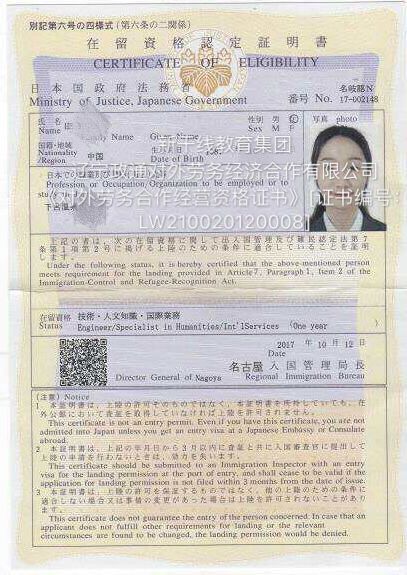 別記第六号の四様式（第六条の二関係）
在留資格認定証明書
CERTIFICATE OF ELIGIBILITY
日本国政府法務省
Ministry of Justice, Japanese Government
名攷認N
番号 No. 17-002148
氏名
Name Family Name Given Name
性別 男 女
Sex M F
写真 photo
国籍・地域
Nationality
/Region
中国
生年月日
Date of Birth
新干线教育集团
对外劳务经济合作有限公司
《对外劳务合作经营资格证书》[证书编号：
LW210020120008]
日本での
Profession or Occupation/Organization to be employed or to
下呂温泉
上記の者は、次の在留資格に関して出入国管理及び難民認定法第7
条第1項第2号に掲げる上陸のための条件に適合していることを証明
します。
Under the following status, it is hereby certified that the above-mentioned person
meets requirement for the landing provided in Article 7, Paragraph 1, Item 2 of the
Immigration-Control and Refugee-Recognition Act.
在留資格
Status
技術・人文知識・国際業務
Engineer/Specialist in Humanities/Int'lServices (One year )
2017 年 10 月 12 日
Date
名古屋 入国管理局長
Director General of Nagoya Regional Immigration Bureau
（注意）Notice
1 本証明書は、上陸の許可そのものではなく、本証明書を所持していても、在
外公館において査証を取得していなければ上陸を許可されません。
This certificate is not an entry permit. Even if you have this certificate, you are not
admitted into Japan unless you get an entry visa at a Japanese Embassy or Consulate
abroad.
2 本証明書は、上記の年月日から3月以内に査証と共に入国審査官に提出して
上陸の申請を行わないときは、効力を失います。
This certificate should be submitted to an Immigration Inspector with an entry
visa for the landing permission at the port of entry, and shall cease to be valid if the
application for landing permission is not filed within 3 months from the date of issue.
3 本証明書は、上陸の許可を保証するものではなく、他の上陸のための条件に
適合しない場合又は事情の変更があった場合は上陸を許可されないことがあり
ます。
This certificate does not guarantee the entry of the person concerned. In case that an
applicant does not fulfill other requirements for landing or the relevant
circumstances are found to be changed, the landing permission would be denied.